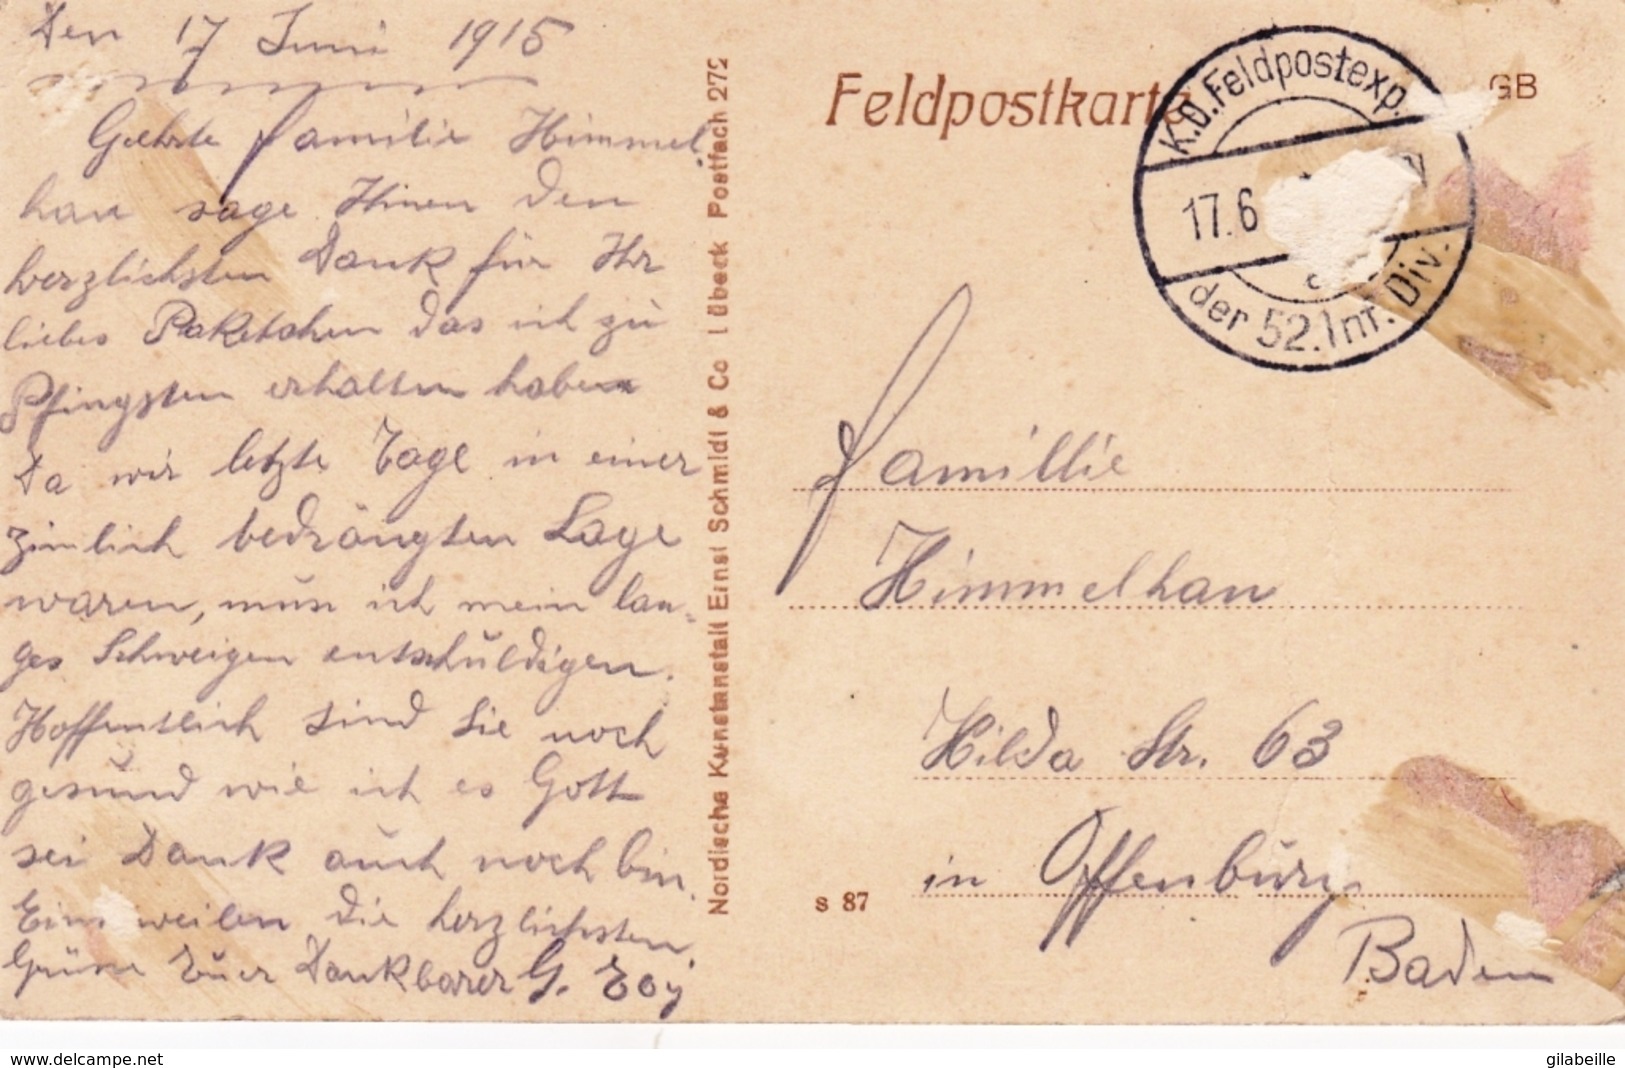 Den 17 Juni 1915
Geehrte Familie Himmel,
han sage Ihnen den
herzlichsten Dank für Ihr
liebes Paketchen das ich zu
Pfingsten erhalten haben
Da wir letzte Tage in einer
zimlich bedrängten Lage
waren, mus ich mein lan-
ges Schweigen entschuldigen.
Hoffentlich sind Sie noch
gesund wie ich es Gott
sei Dank auch noch bin.
Einsweilen die herzlichsten
Grüsse Euer Dankbarer G.
Nordische Kunstanstalt Ernst Schmidt & Co Lübeck Postfach 272
Feldpostkarte
GB
K.D. Feldpostexp.
17.6
der 52. Inf. Div.
Familie
Himmelhan
Hilda Str. 63
in Offenburg
Baden
s 87
www.delcampe.net
gilabeille